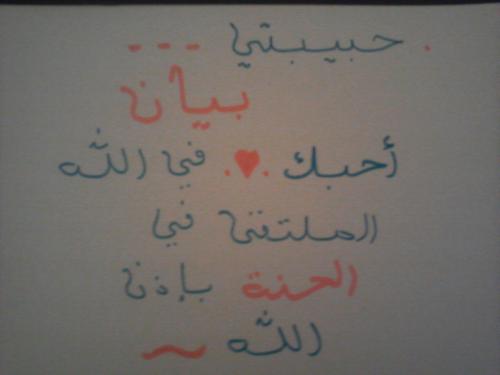 . حبيبتي ---
بيان
أحبك .♥. في الله
الملتقى في
الجنة بإذن
الله ~